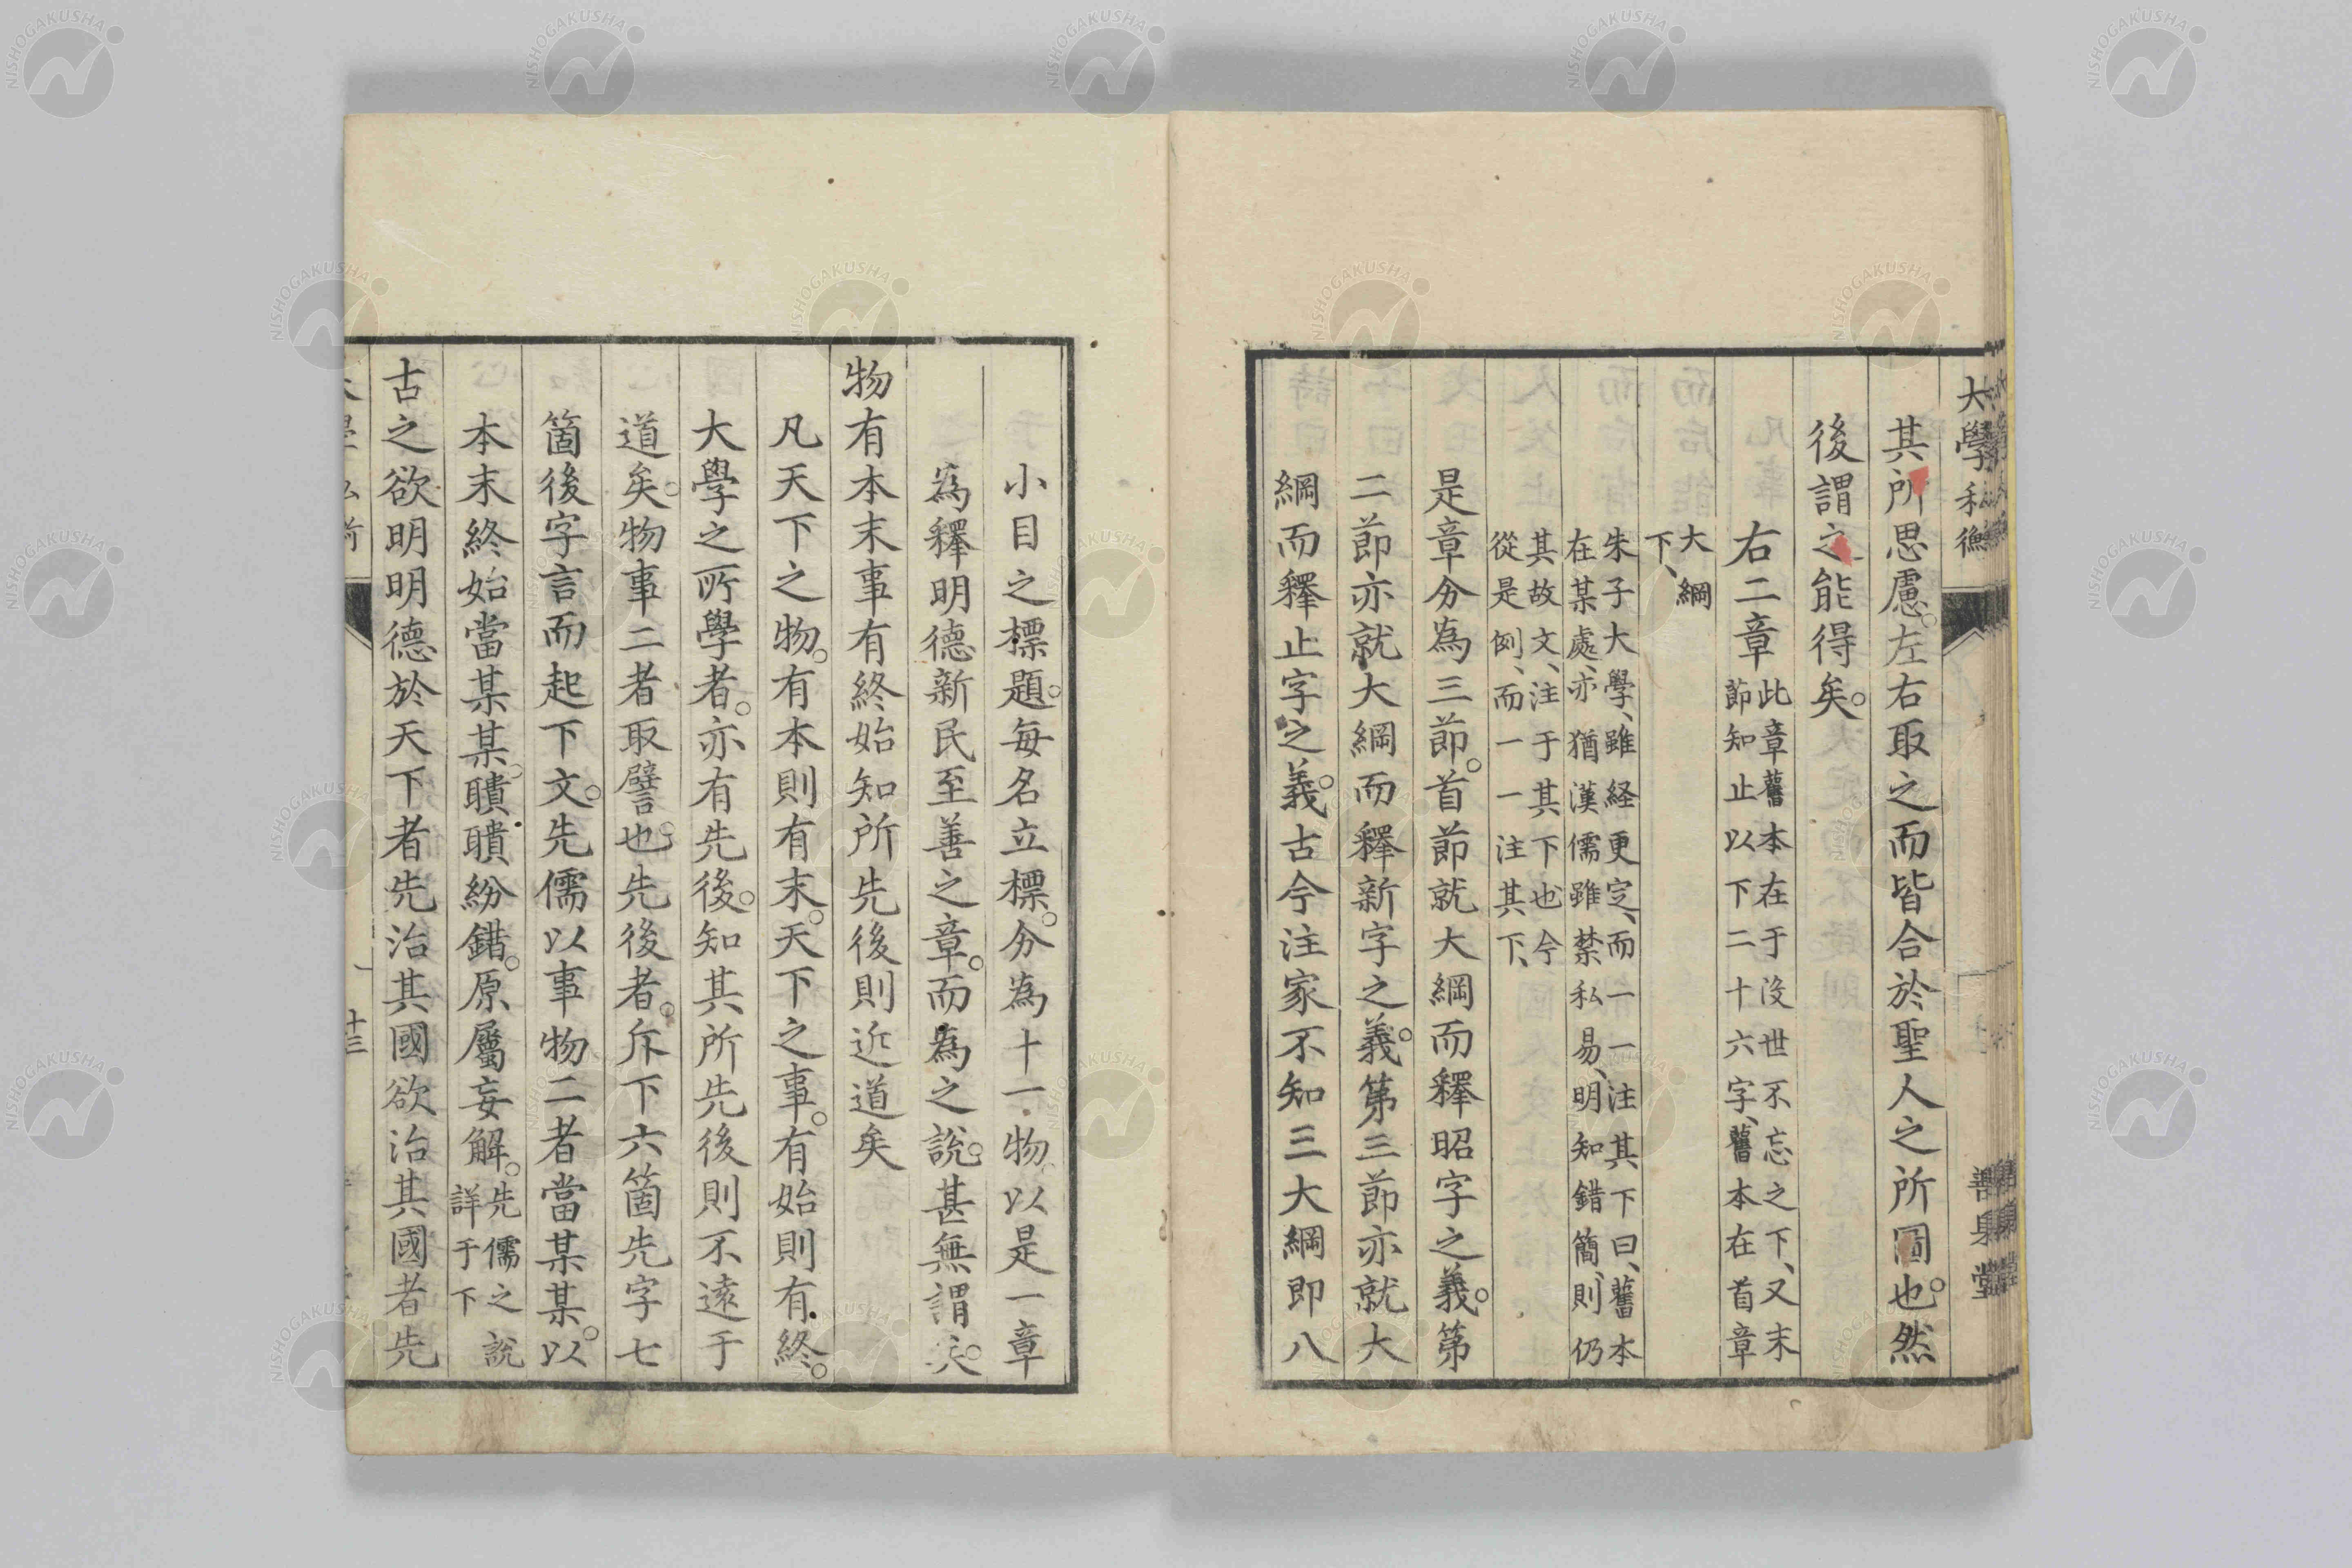 大學私衡
善身堂
其所思慮。左右取之而皆合於聖人之所圖也。然
後謂之能得矣。
右二章
此章舊本在于沒世不忘之下、又末
節知止以下二十六字、舊本在首章
大綱
下、
朱子大學、雖経更定、而一一注其下曰、舊本
在某處、亦猶漢儒雖禁私易、明知錯簡、則仍
其故文、注于其下也今
從是例、而一一注其下、
是章分為三節。首節就大綱而釋昭字之義。第
二節亦就大綱而釋新字之義。第三節亦就大
綱而釋止字之義。古今注家不知三大綱即八
小目之標題。每名立標。分為十一物以是一章
為釋明德新民至善之章。而為之說。甚無謂矣。
物有本末事有終始知所先後則近道矣
凡天下之物。有本則有末。天下之事。有始則有終。
大學之所學者。亦有先後。知其所先後則不遠于
道矣。物事二者取譬也。先後者。斥下六箇先字七
箇後字言而起下文。先儒以事物二者當某某。以
本末終始當某某。聵聵紛錯。原屬妄解。
先儒之說
詳于下
古之欲明明德於天下者先治其國欲治其國者先
十三